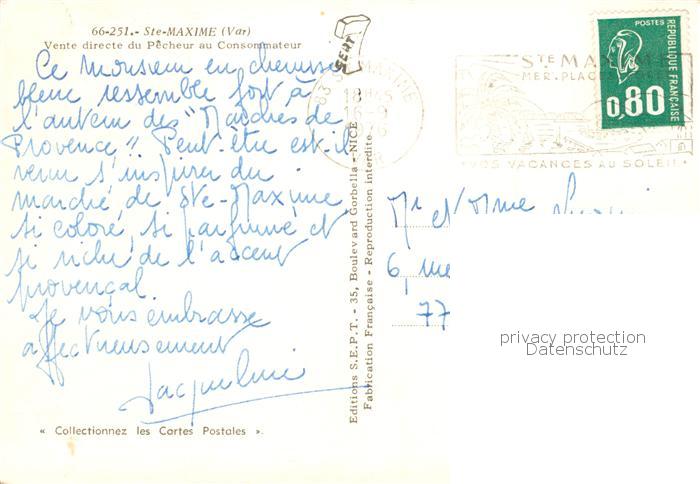 66-251.- Ste-MAXIME (Var)
Vente directe du Pêcheur au Consommateur
Ce monsieur en chemise
bleue ressemble fort à
l'auteur des "Madres de
Provence" Peut-être est-il
venu s'inspirer du
marché de Ste-Maxime
si coloré, si parfumé et
si riche de l'accent
provençal.
Je vous embrasse
affectueusement
Jacqueline
« Collectionnez les Cartes Postales ».
Editions S.E.P.T. - 35, Boulevard Gorbella - NICE
Fabrication Française - Reproduction interdite.
SEPT
83 STE MAXIME
18H45
16-9
VAR
STE MAXIME
MER. PLAGES
VOS VACANCES AU SOLEIL
POSTES
REPUBLIQUE FRANÇAISE
0,80
Mr et Mme
6, rue
77
privacy protection
Datenschutz